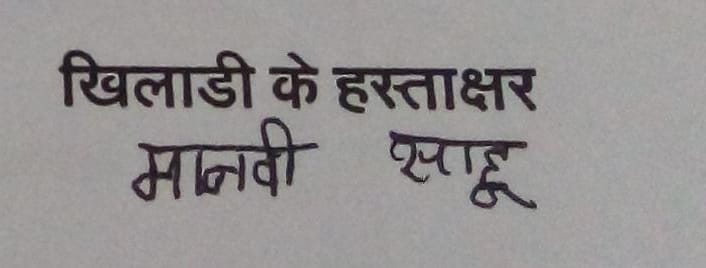 खिलाडी के हस्ताक्षर
मानवी साहू